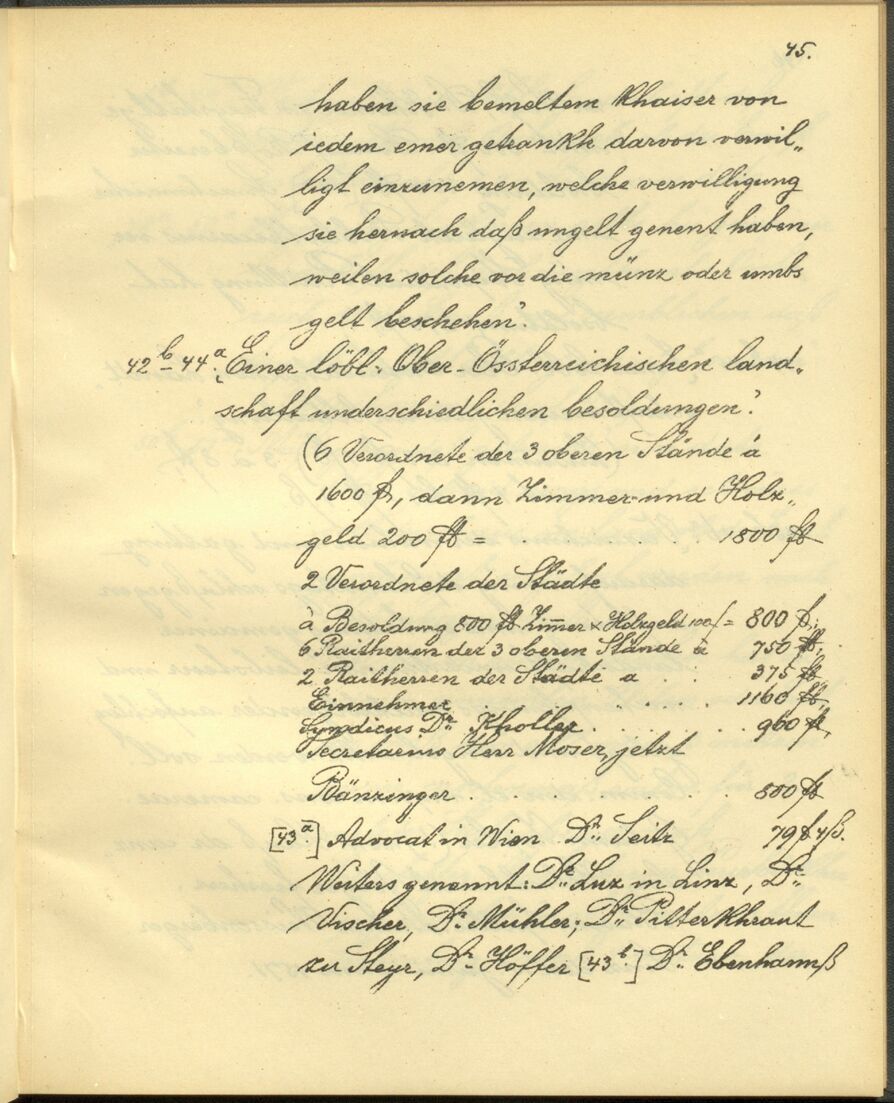 45.
haben sie bemeltem Khaiser von
iedem emer getrankh darvon verwil„
ligt einzunemen, welche verwilligung
sie hernach daß ungelt genent haben,
weilen solche vor die münz oder umbs
gelt beschehen".
42 b – 44 a. „Einer löbl. Ober-Össterreichischen land„
schaft underschiedlichen besoldungen".
(6 Verordnete der 3 oberen Stände à
1600 f, dann Zimmer- und Holz„
geld 200 fl = 1800 fl
2 Verordnete der Städte
à Besoldung 800 fl Zim̄er & Holzgeld 100 f = 800 f,
6 Raitherren der 3 oberen Stände à 750 fl,
2 Raitherren der Städte a . . 375 fl
Einnehmer . . . . . . 1160 fl,
Syndicus Dr. Kholler . . . . . 900 fl,
Secretarius Herr Moser, jetzt
Bänzinger . . . . . . . 800 fl
[43 a.] Advocat in Wien Dr. Seitz 79 f 4 ß.
Weiters genannt: Dr. Luz in Linz, Dr.
Vischer, Dr. Mühler; Dr. Pitterkhraut
zu Steyr, Dr. Höffer [43 b.] Dr. Ebenhannß